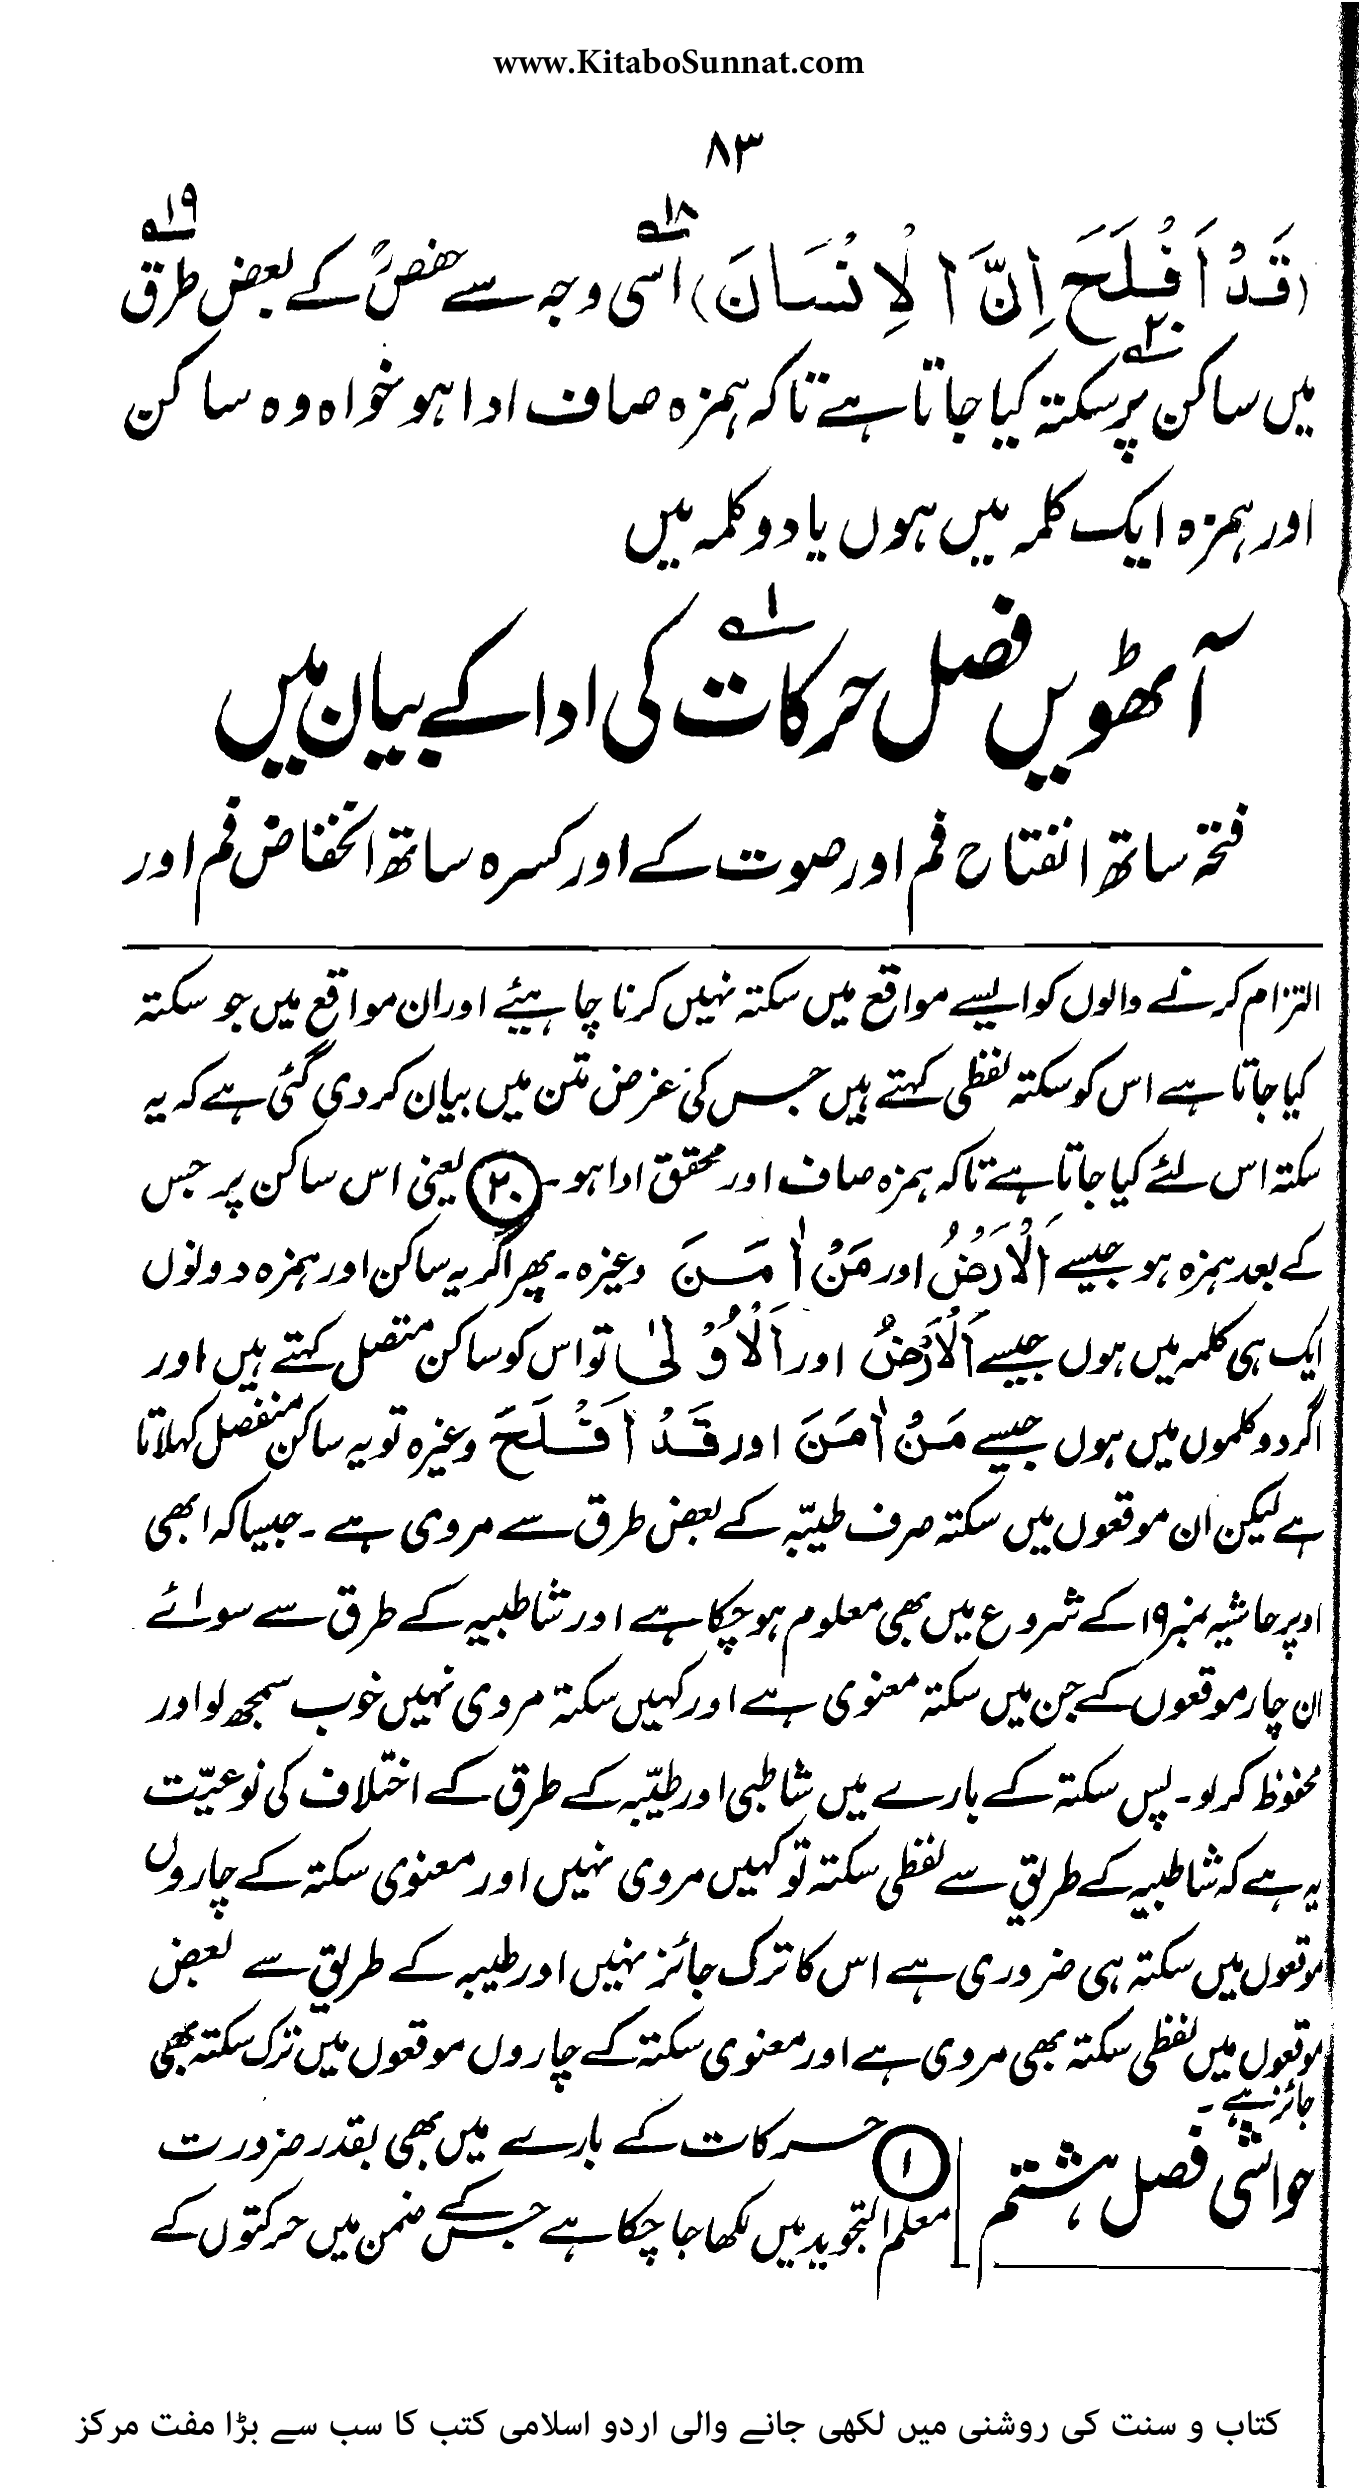 www.KitaboSunnat.com
۸۳
(قَدْ اَفْلَحَ اِنَّ الْاِنْسَانَ) اسی ۱۸ وجہ سے حفصؒ کے بعض طرق ۱۹
میں ساکن پر ۲۰ سکتہ کیا جاتا ہے تاکہ ہمزہ صاف ادا ہو خواہ وہ ساکن
اور ہمزہ ایک کلمہ میں ہوں یا دو کلمہ میں
آٹھویں فصل حرکات ۱ کی ادا کے بیان میں
فتحہ ساتھ انفتاح فم اور صوت کے اور کسرہ ساتھ انخفاض فم اور
التزام کرنے والوں کو ایسے مواقع میں سکتہ نہیں کرنا چاہیئے اور ان مواقع میں جو سکتہ
کیا جاتا ہے اس کو سکتہ لفظی کہتے ہیں جس کی غرض متن میں بیان کر دی گئی ہے کہ یہ
سکتہ اس لئے کیا جاتا ہے تاکہ ہمزہ صاف اور محقق ادا ہو۔ ۲۰ یعنی اس ساکن پر جس
کے بعد ہمزہ ہو جیسے اَلْاَرْضُ اور مَنْ اٰمَنَ وغیرہ۔ پھر اگر یہ ساکن اور ہمزہ دونوں
ایک ہی کلمہ میں ہوں جیسے اَلْاَرْضُ اور اَلْاُوْلٰی تو اس کو ساکن متصل کہتے ہیں اور
اگر دو کلموں میں ہوں جیسے مَنْ اٰمَنَ اور قَدْ اَفْلَحَ وغیرہ تو یہ ساکن منفصل کہلاتا
ہے لیکن ان موقعوں میں سکتہ صرف طیبّہ کے بعض طرق سے مروی ہے ۔ جیسا کہ ابھی
اوپر حاشیہ نمبر ۱۹ کے شروع میں بھی معلوم ہو چکا ہے اور شاطبیہ کے طرق سے سوائے
ان چار موقعوں کے جن میں سکتہ معنوی ہے اور کہیں سکتہ مروی نہیں خوب سمجھ لو اور
محفوظ کر لو۔ پس سکتہ کے بارے میں شاطبی اور طیبّہ کے طرق کے اختلاف کی نوعیّت
یہ ہے کہ شاطبیہ کے طریق سے لفظی سکتہ تو کہیں مروی نہیں اور معنوی سکتہ کے چاروں
موقعوں میں سکتہ ہی ضروری ہے اس کا ترک جائز نہیں اور طیبہ کے طریق سے بعض
موقعوں میں لفظی سکتہ بھی مروی ہے اور معنوی سکتہ کے چاروں موقعوں میں ترک سکتہ بھی
جائز ہے ۔
حواشی فصل ہشتم
۱ حرکات کے بارے میں بھی بقدر ضرورت
معلم التجوید میں لکھا جا چکا ہے جس کے ضمن میں حرکتوں کے
کتاب و سنت کی روشنی میں لکھی جانے والی اردو اسلامی کتب کا سب سے بڑا مفت مرکز